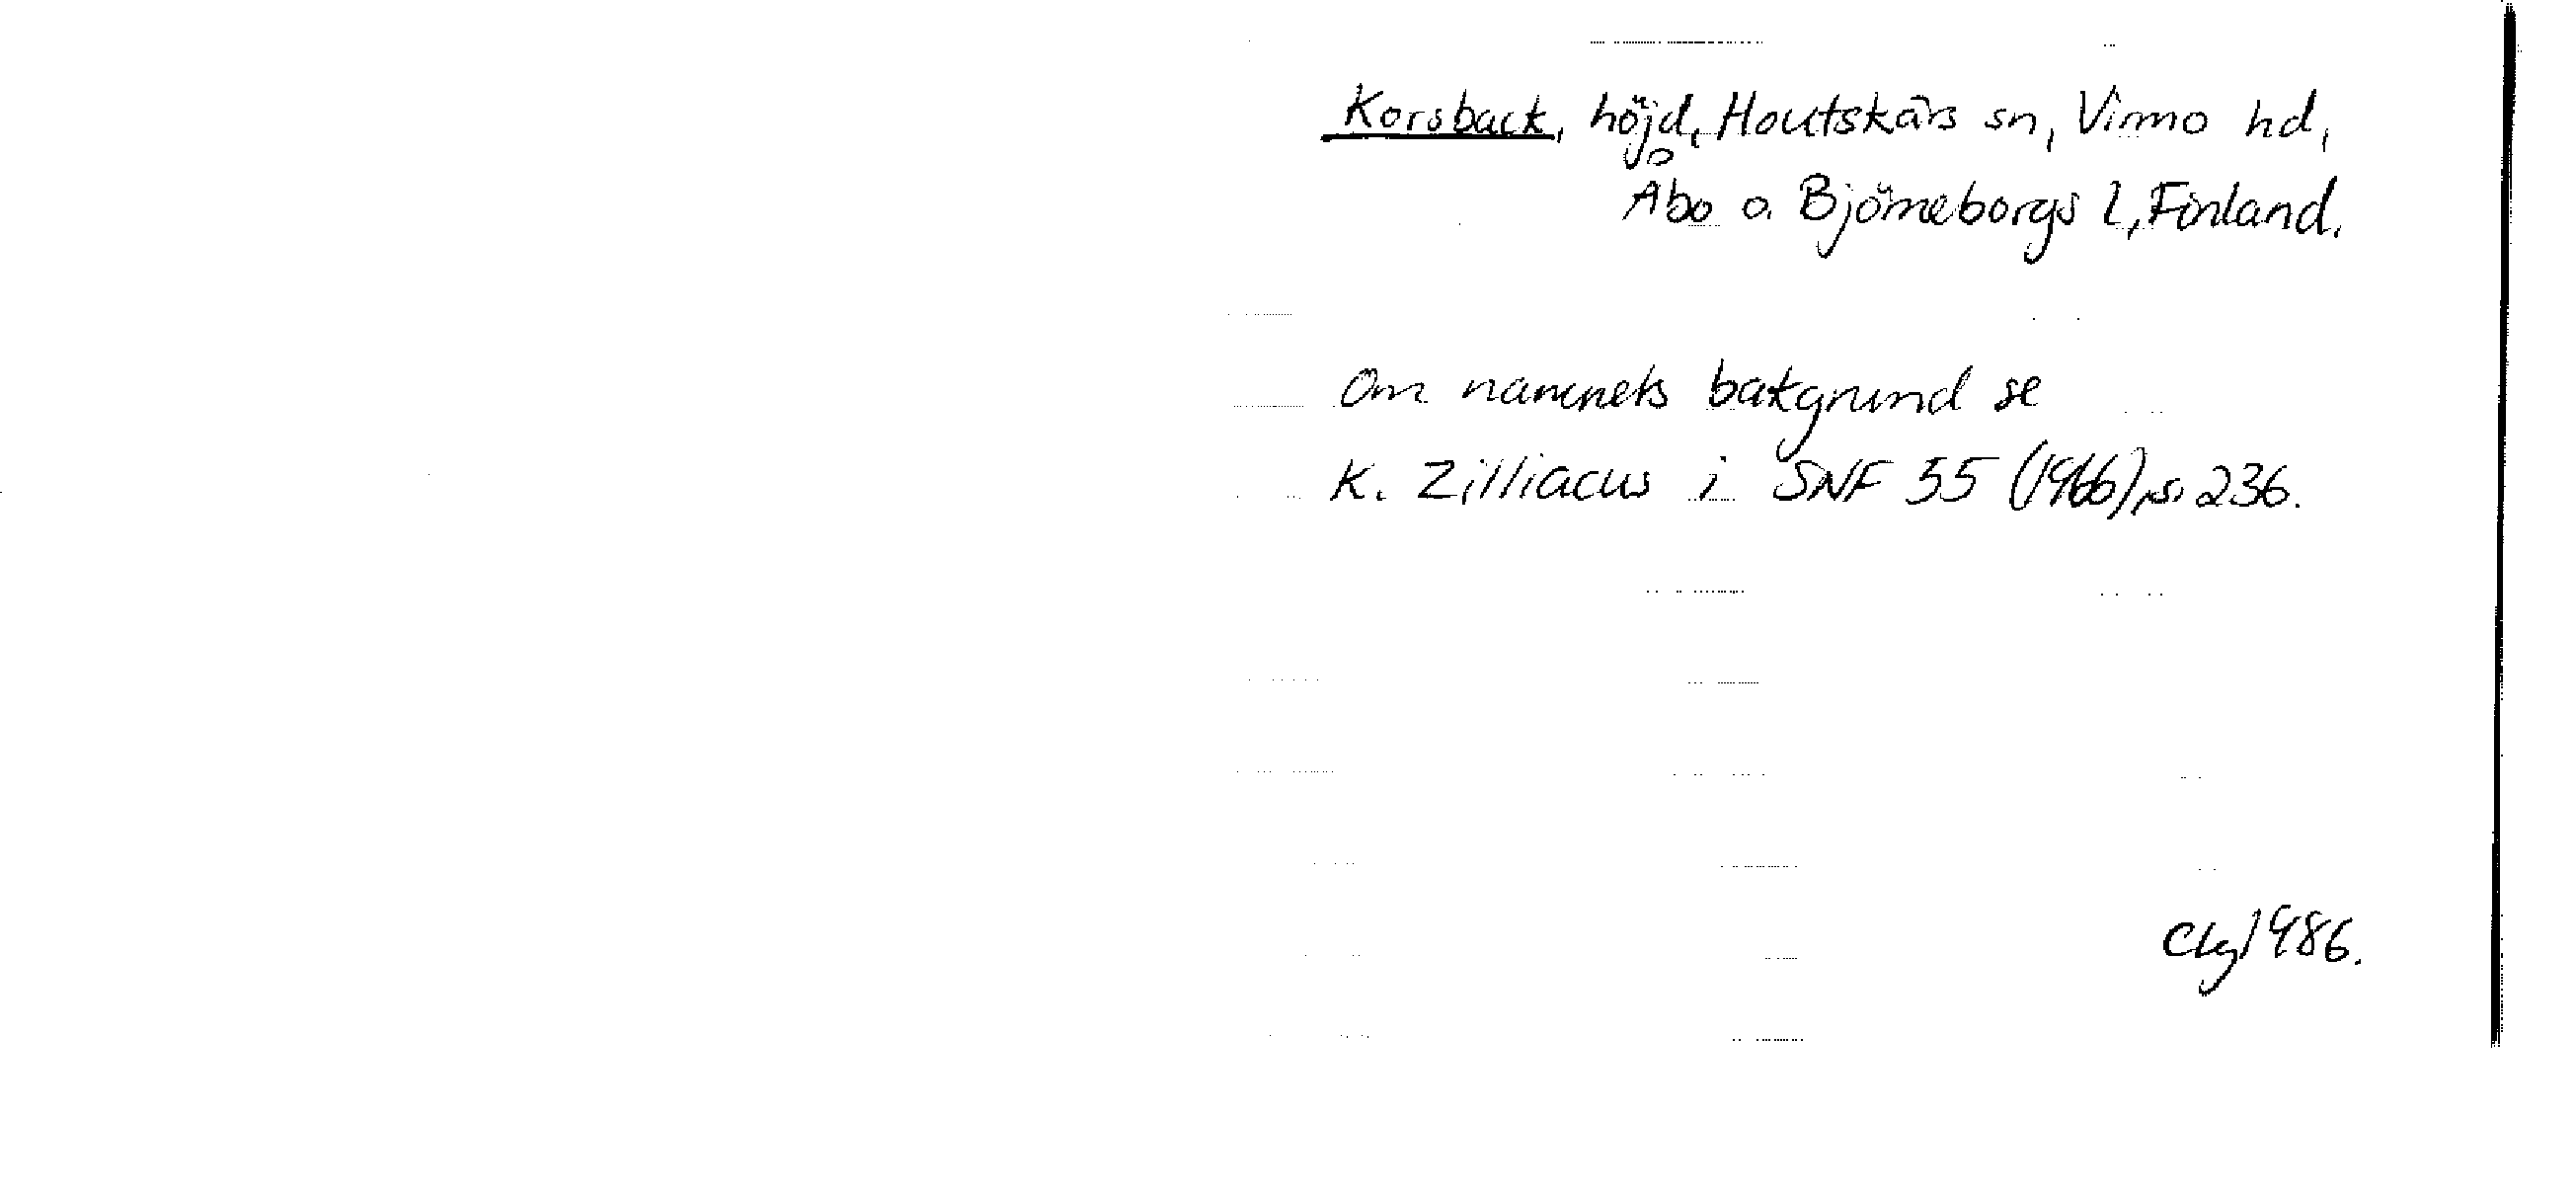 Korsback, höjd, Houtskärs sn, Virmo hd,
Åbo o. Björneborgs l, Finland.
Om namnets bakgrund se
K. Zilliacus i SNF 55 (1966), s. 236.
1986.